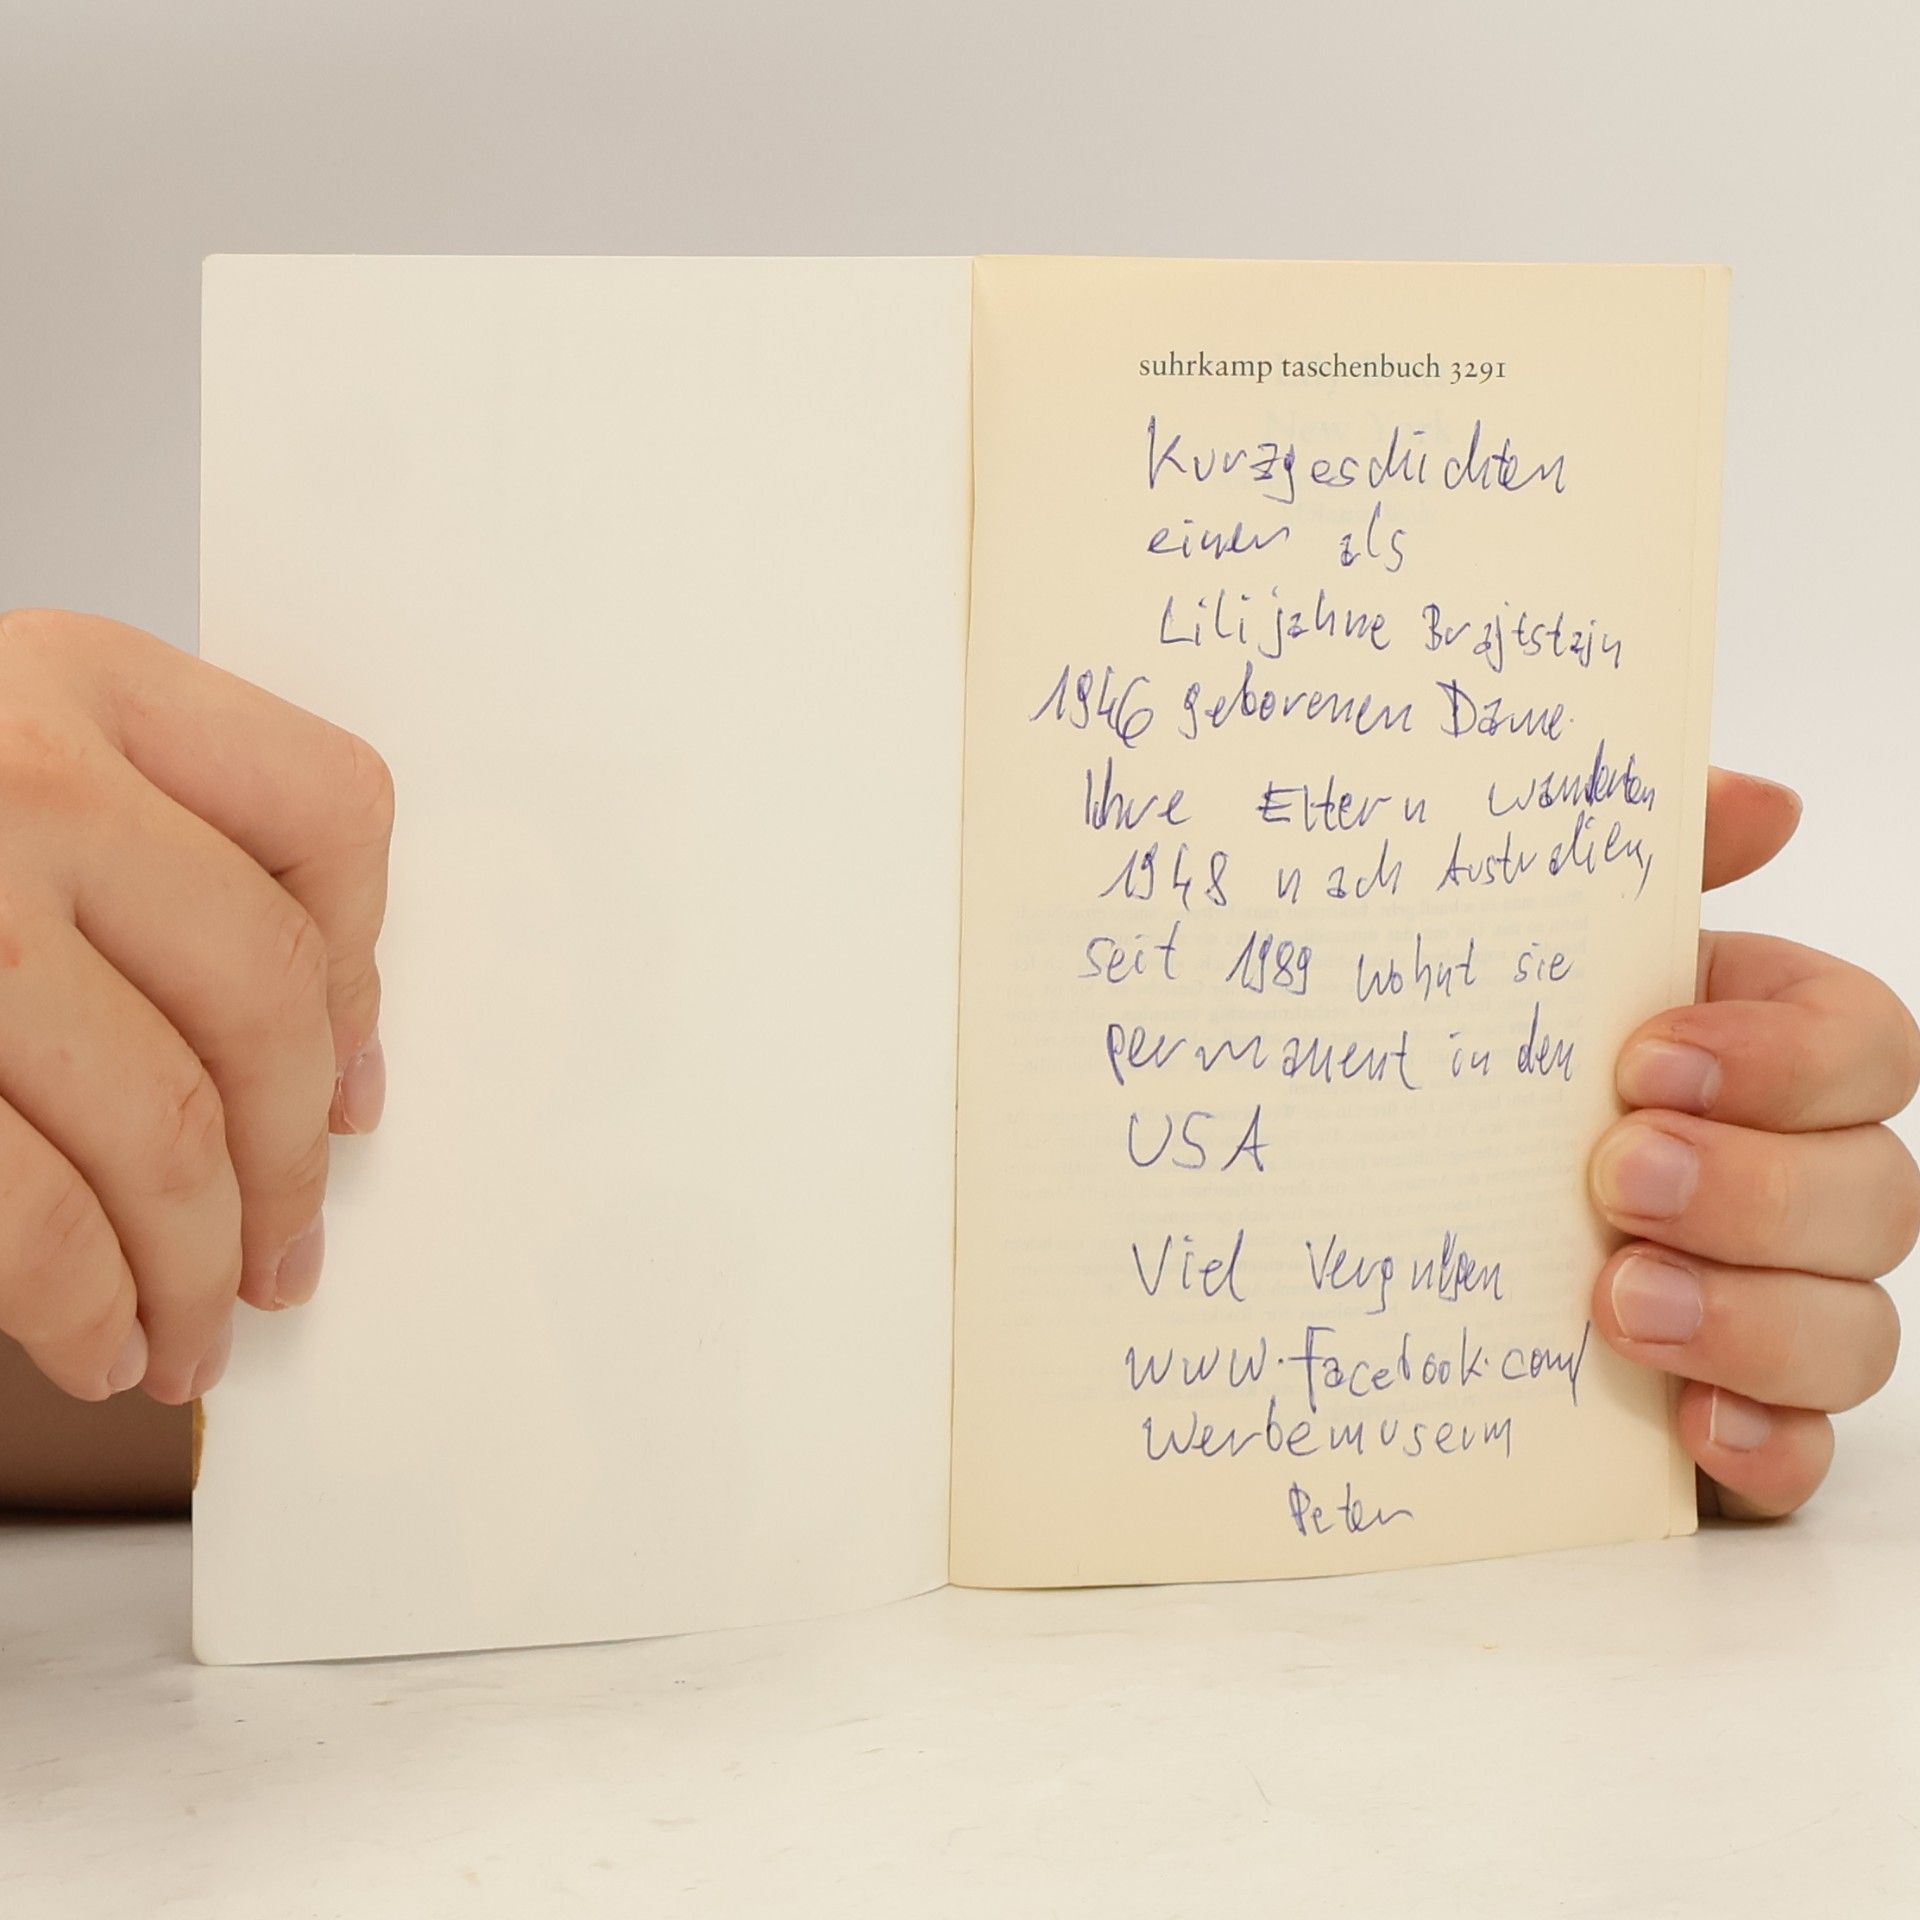 suhrkamp taschenbuch 3291
Kurzgeschichten
einer als
Lilijahne Brajtstajn
1946 geborenen Dame.
Ihre Eltern wanderten
1948 nach Australien,
seit 1989 wohnt sie
permanent in den
USA
Viel Vergnügen
www.facebook.com/
Werbemuseum
Peter